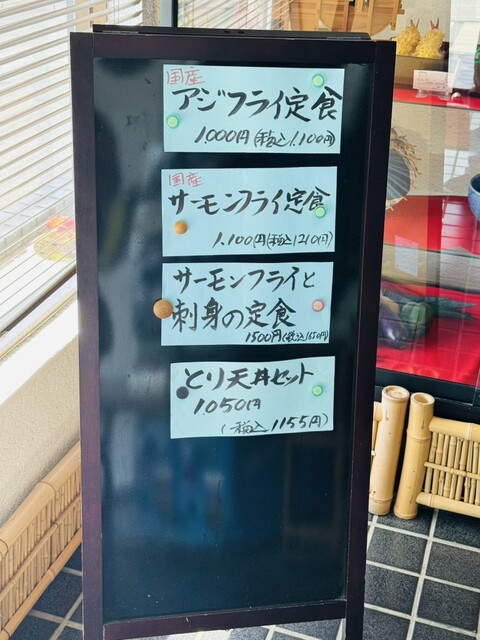 国産
アジフライ定食
1.000円(税込1.100円)
国産
サーモンフライ定食
1.100円(税込1210円)
サーモンフライと
刺身の定食
1500円(税込1650円)
とり天丼セット
1050円
(税込1155円)